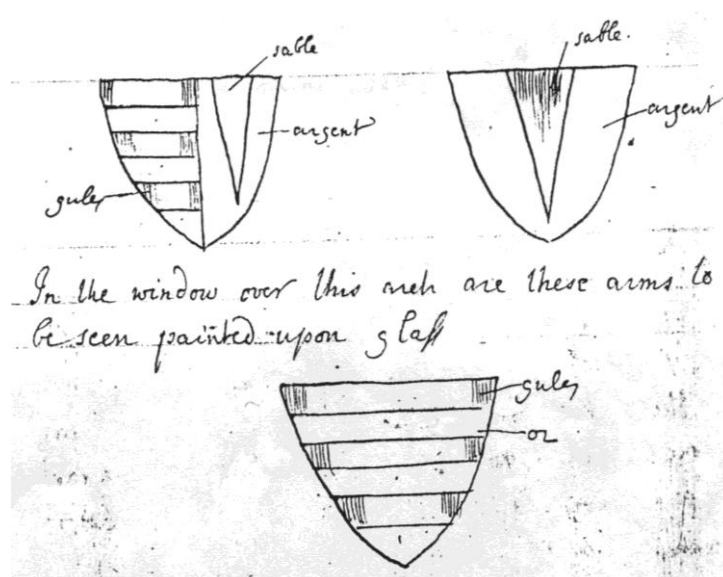 sable
sable.
argent
argent
gules
In the window over this arch are these arms to
be seen painted upon glass
gules
or